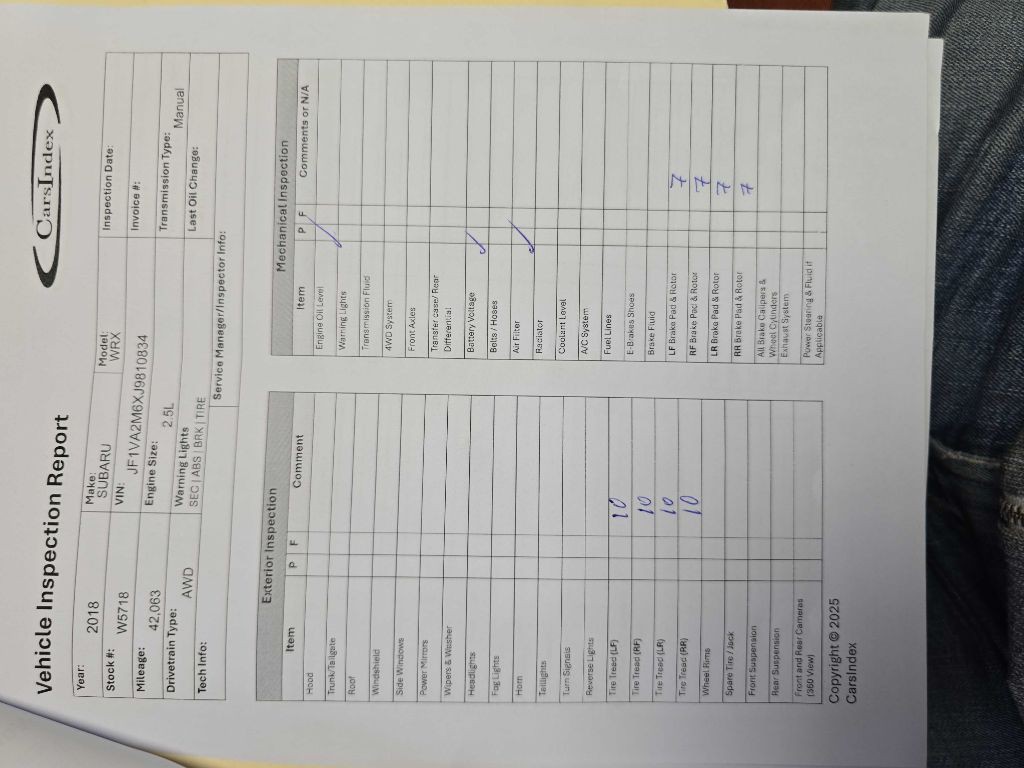 Vehicle Inspection Report
CarsIndex
Year: 2018 Make: SUBARU Model: WRX Inspection Date:
Stock #: W5718 VIN: JF1VA2M6XJ9810834 Invoice #:
Mileage: 42,063 Engine Size: 2.5L Transmission Type: Manual
Drivetrain Type: AWD Warning Lights SEC | ABS | BRK | TIRE Last Oil Change:
Tech Info: Service Manager/Inspector Info:
Exterior Inspection
Item P F Comment
Hood
Trunk/Tailgate
Roof
Windshield
Side Windows
Power Mirrors
Wipers & Washer
Headlights
Fog Lights
Horn
Taillights
Turn Signals
Reverse Lights
Tire Tread (LF) 10
Tire Tread (RF) 10
Tire Tread (LR) 10
Tire Tread (RR) 10
Wheel Rims
Spare Tire / Jack
Front Suspension
Rear Suspension
Front and Rear Cameras
(360 View)
Mechanical Inspection
Item P F Comments or N/A
Engine Oil Level ✓
Warning Lights
Transmission Fluid
4WD System
Front Axles
Transfer case/ Rear
Differential
Battery Voltage ✓
Belts / Hoses
Air Filter ✓
Radiator
Coolant Level
A/C System
Fuel Lines
E-Brakes Shoes
Brake Fluid
LF Brake Pad & Rotor 7
RF Brake Pad & Rotor 7
LR Brake Pad & Rotor 7
RR Brake Pad & Rotor 7
All Brake Calipers &
Wheel Cylinders
Exhaust System
Power Steering & Fluid if
Applicable
Copyright © 2025
CarsIndex